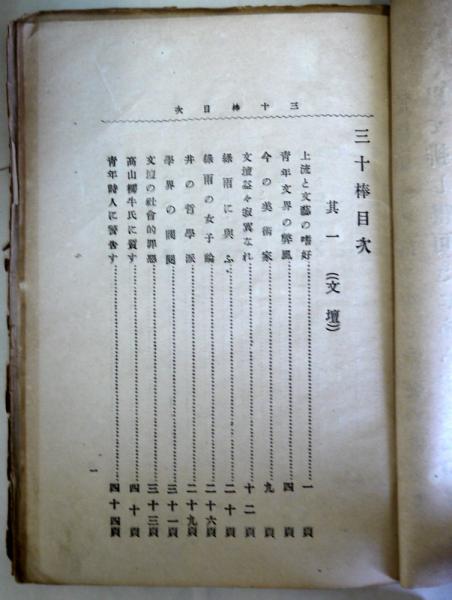 三十棒目次
三十棒目次
其一（文壇）
上流と文藝の嗜好……一頁
青年文界の弊風……四頁
今の美術家……九頁
文壇益々寂寞なれ……十二頁
綠雨に與ふ……二十頁
綠雨の女子論……二十六頁
井の哲學派……二十九頁
學界の閥閲……三十一頁
文壇の社會的罪惡……三十三頁
高山樗牛氏に質す……四十頁
青年詩人に警告す……四十四頁
一